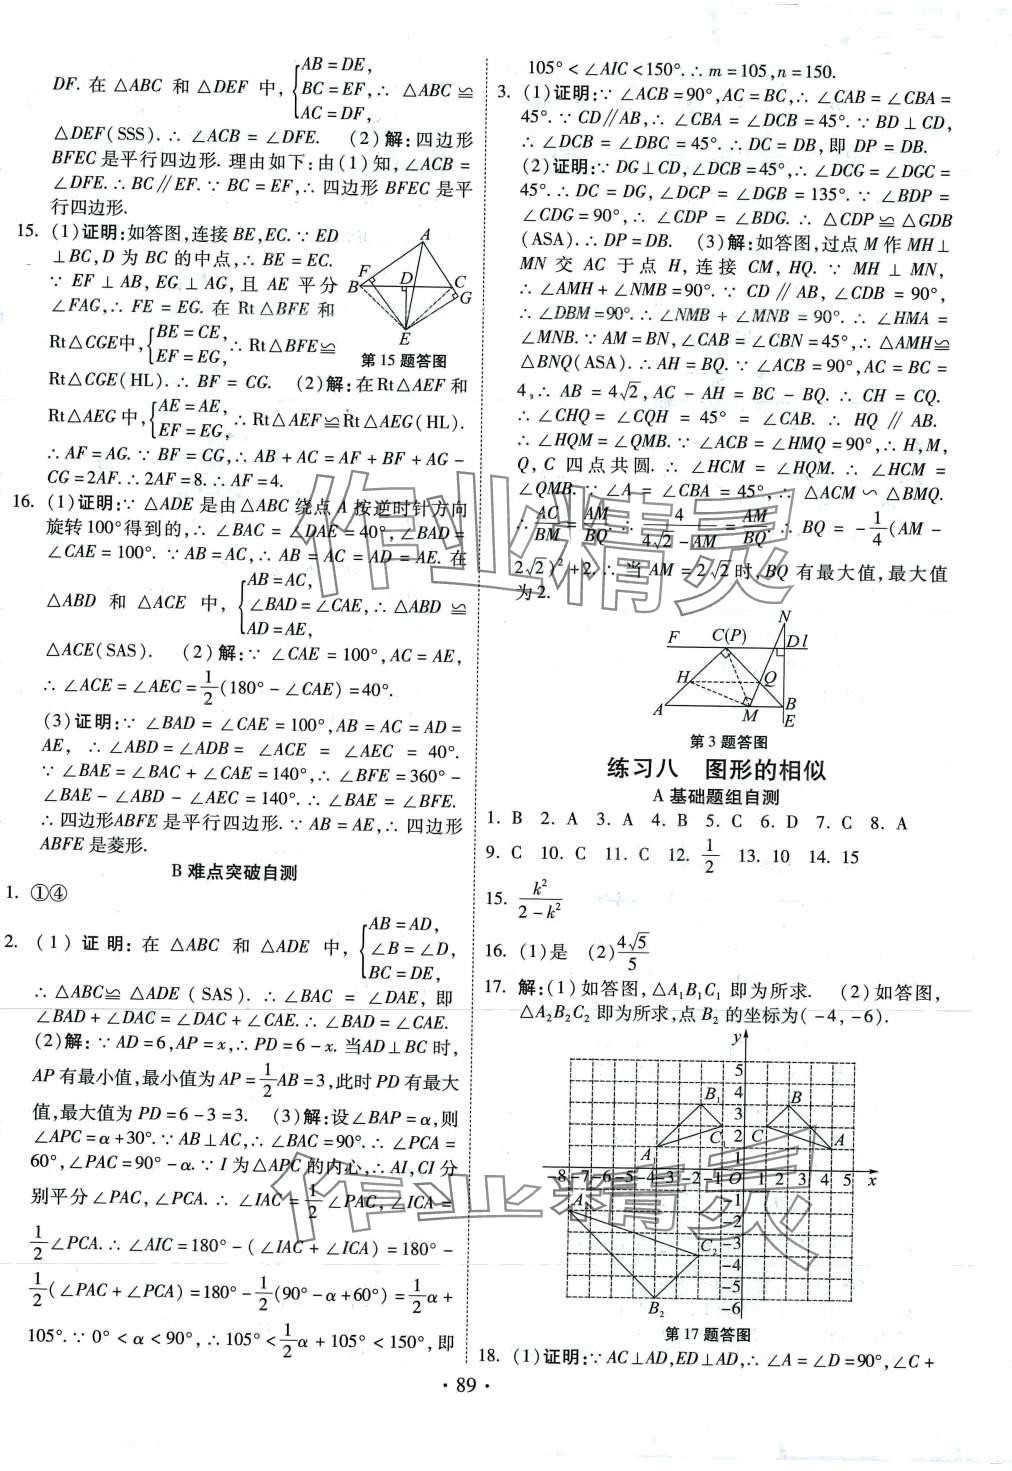 DF. 在 △ABC 和 △DEF 中, {AB=DE, BC=EF, AC=DF, ∴ △ABC ≌
△DEF(SSS). ∴ ∠ACB = ∠DFE. (2)解:四边形
BFEC 是平行四边形. 理由如下:由(1)知, ∠ACB =
∠DFE. ∴ BC∥EF. ∵ BC = EF, ∴ 四边形 BFEC 是平
行四边形.
15. (1)证明:如答图,连接 BE,EC. ∵ ED
⊥BC,D 为 BC 的中点, ∴ BE = EC.
∵ EF ⊥ AB, EG ⊥ AG, 且 AE 平分
∠FAG, ∴ FE = EG. 在 Rt△BFE 和
Rt△CGE中, {BE=CE, EF=EG, ∴ Rt△BFE≌
Rt△CGE(HL). ∴ BF = CG. (2)解:在Rt△AEF和
Rt△AEG 中, {AE=AE, EF=EG, ∴ Rt△AEF≌Rt△AEG(HL).
∴ AF = AG. ∵ BF = CG, ∴ AB + AC = AF + BF + AG −
CG = 2AF. ∴ 2AF = 8. ∴ AF = 4.
A
F
B
D
C
G
E
第 15 题答图
16. (1)证明: ∵ △ADE 是由△ABC 绕点 A 按逆时针方向
旋转100°得到的, ∴ ∠BAC = ∠DAE = 40°, ∠BAD =
∠CAE = 100°. ∵ AB = AC, ∴ AB = AC = AD = AE. 在
△ABD 和 △ACE 中, {AB=AC, ∠BAD=∠CAE, AD=AE, ∴ △ABD ≌
△ACE(SAS). (2)解: ∵ ∠CAE = 100°, AC = AE,
∴ ∠ACE = ∠AEC = 1/2(180° − ∠CAE) = 40°.
(3)证明: ∵ ∠BAD = ∠CAE = 100°, AB = AC = AD =
AE, ∴ ∠ABD = ∠ADB = ∠ACE = ∠AEC = 40°.
∴ ∠BAE = ∠BAC + ∠CAE = 140°, ∴ ∠BFE = 360° −
∠BAE − ∠ABD − ∠AEC = 140°. ∴ ∠BAE = ∠BFE.
∴ 四边形ABFE 是平行四边形. ∵ AB = AE, ∴ 四边形
ABFE 是菱形.
B 难点突破自测
1. ①④
2. (1) 证明: 在 △ABC 和 △ADE 中, {AB=AD, ∠B=∠D, BC=DE,
∴ △ABC≌△ADE(SAS). ∴ ∠BAC = ∠DAE, 即
∠BAD + ∠DAC = ∠DAC + ∠CAE. ∴ ∠BAD = ∠CAE.
(2)解: ∵ AD = 6, AP = x, ∴ PD = 6 − x. 当AD⊥BC 时,
AP 有最小值,最小值为 AP = 1/2 AB = 3, 此时 PD 有最大
值,最大值为 PD = 6 − 3 = 3. (3)解:设∠BAP = α, 则
∠APC = α + 30°. ∵ AB⊥AC, ∴ ∠BAC = 90°. ∴ ∠PCA =
60°, ∠PAC = 90° − α. ∵ I 为△APC 的内心, ∴ AI, CI 分
别平分∠PAC, ∠PCA. ∴ ∠IAC = 1/2 ∠PAC, ∠ICA =
1/2 ∠PCA. ∴ ∠AIC = 180° − (∠IAC + ∠ICA) = 180° −
1/2(∠PAC + ∠PCA) = 180° − 1/2(90° − α + 60°) = 1/2 α +
105°. ∵ 0° < α < 90°, ∴ 105° < 1/2 α + 105° < 150°, 即
105° < ∠AIC < 150°. ∴ m = 105, n = 150.
3. (1)证明: ∵ ∠ACB = 90°, AC = BC, ∴ ∠CAB = ∠CBA =
45°. ∵ CD∥AB, ∴ ∠CBA = ∠DCB = 45°. ∵ BD⊥CD,
∴ ∠DCB = ∠DBC = 45°. ∴ DC = DB, 即 DP = DB.
(2)证明: ∵ DG⊥CD, ∠DCB = 45°, ∴ ∠DCG = ∠DGC =
45°. ∴ DC = DG, ∠DCP = ∠DGB = 135°. ∵ ∠BDP =
∠CDG = 90°, ∴ ∠CDP = ∠BDG. ∴ △CDP ≌ △GDB
(ASA). ∴ DP = DB. (3)解:如答图,过点 M 作 MH⊥
MN 交 AC 于点 H, 连接 CM, HQ. ∵ MH ⊥ MN,
∴ ∠AMH + ∠NMB = 90°. ∵ CD ∥ AB, ∠CDB = 90°,
∴ ∠DBM = 90°. ∴ ∠NMB + ∠MNB = 90°. ∴ ∠HMA =
∠MNB. ∵ AM = BN, ∠CAB = ∠CBN = 45°, ∴ △AMH≌
△BNQ(ASA). ∴ AH = BQ. ∵ ∠ACB = 90°, AC = BC =
4, ∴ AB = 4√2, AC − AH = BC − BQ. ∴ CH = CQ.
∴ ∠CHQ = ∠CQH = 45° = ∠CAB. ∴ HQ ∥ AB.
∴ ∠HQM = ∠QMB. ∵ ∠ACB = ∠HMQ = 90°, ∴ H, M,
Q, C 四点共圆. ∴ ∠HCM = ∠HQM. ∴ ∠HCM =
∠QMB. ∵ ∠A = ∠CBA = 45°, ∴ △ACM ∽ △BMQ.
∴ AC/BM = AM/BQ. ∴ 4/(4√2 − AM) = AM/BQ. ∴ BQ = −1/4(AM −
2√2)² + 2. ∴ 当 AM = 2√2 时, BQ 有最大值, 最大值
为 2.
N
F
C(P)
D
l
H
Q
A
M
B
E
第 3 题答图
练习八 图形的相似
A 基础题组自测
1. B 2. A 3. A 4. B 5. C 6. D 7. C 8. A
9. C 10. C 11. C 12. 1/2 13. 10 14. 15
15. k²/(2 − k²)
16. (1)是 (2) 4√5/5
17. 解:(1)如答图, △A₁B₁C₁ 即为所求. (2)如答图,
△A₂B₂C₂ 即为所求,点 B₂ 的坐标为( −4, −6).
y
5
4
B₁ 3 B
C₁ 2 C
A₁ 1 A
-8 -7 -6 -5 -4 -3 -2 -1 O 1 2 3 4 5 x
A₂ -1
-2
-3
C₂ -4
-5
B₂ -6
第 17 题答图
18. (1)证明: ∵ AC⊥AD, ED⊥AD, ∴ ∠A = ∠D = 90°, ∠C +
· 89 ·
作业精灵
作业精灵